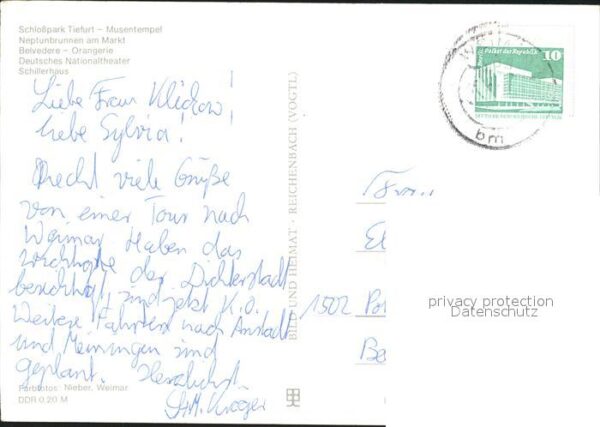 Schloßpark Tiefurt – Musentempel
Neptunbrunnen am Markt
Belvedere – Orangerie
Deutsches Nationaltheater
Schillerhaus
Liebe Frau !
liebe Sylvia!
Recht viele Grüße
von einer Tour nach
Weimar. Haben das
der Dichterstadt
besichtigt, sind jetzt K.O.
Weitere Fahrten nach Arnstadt
und Meiningen sind
geplant. Herzlichst
Farbfotos: Nieber, Weimar
DDR 0,20 M
BILD UND HEIMAT · REICHENBACH (VOGTL)
Palast der Republik
10
bm
1502
privacy protection
Datenschutz